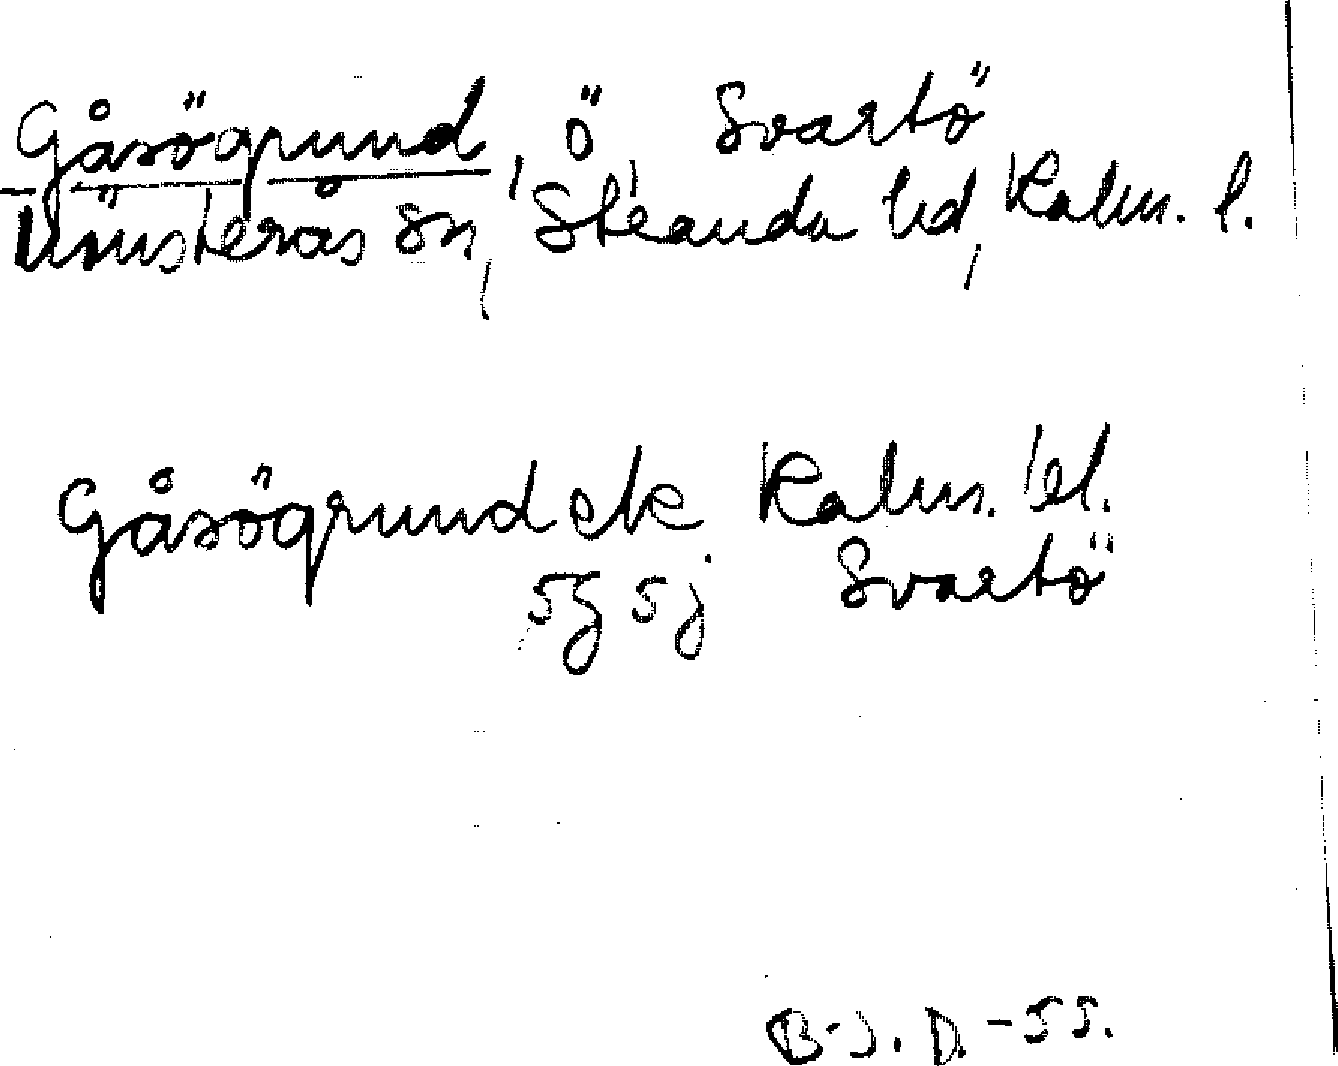 Gåsögrund, ö Svartö
Mönsterås sn, Stranda hd, Kalm. l.
Gåsögrund ek. Kalm. l.
5g 5j Svartö
B-J. D. -55.